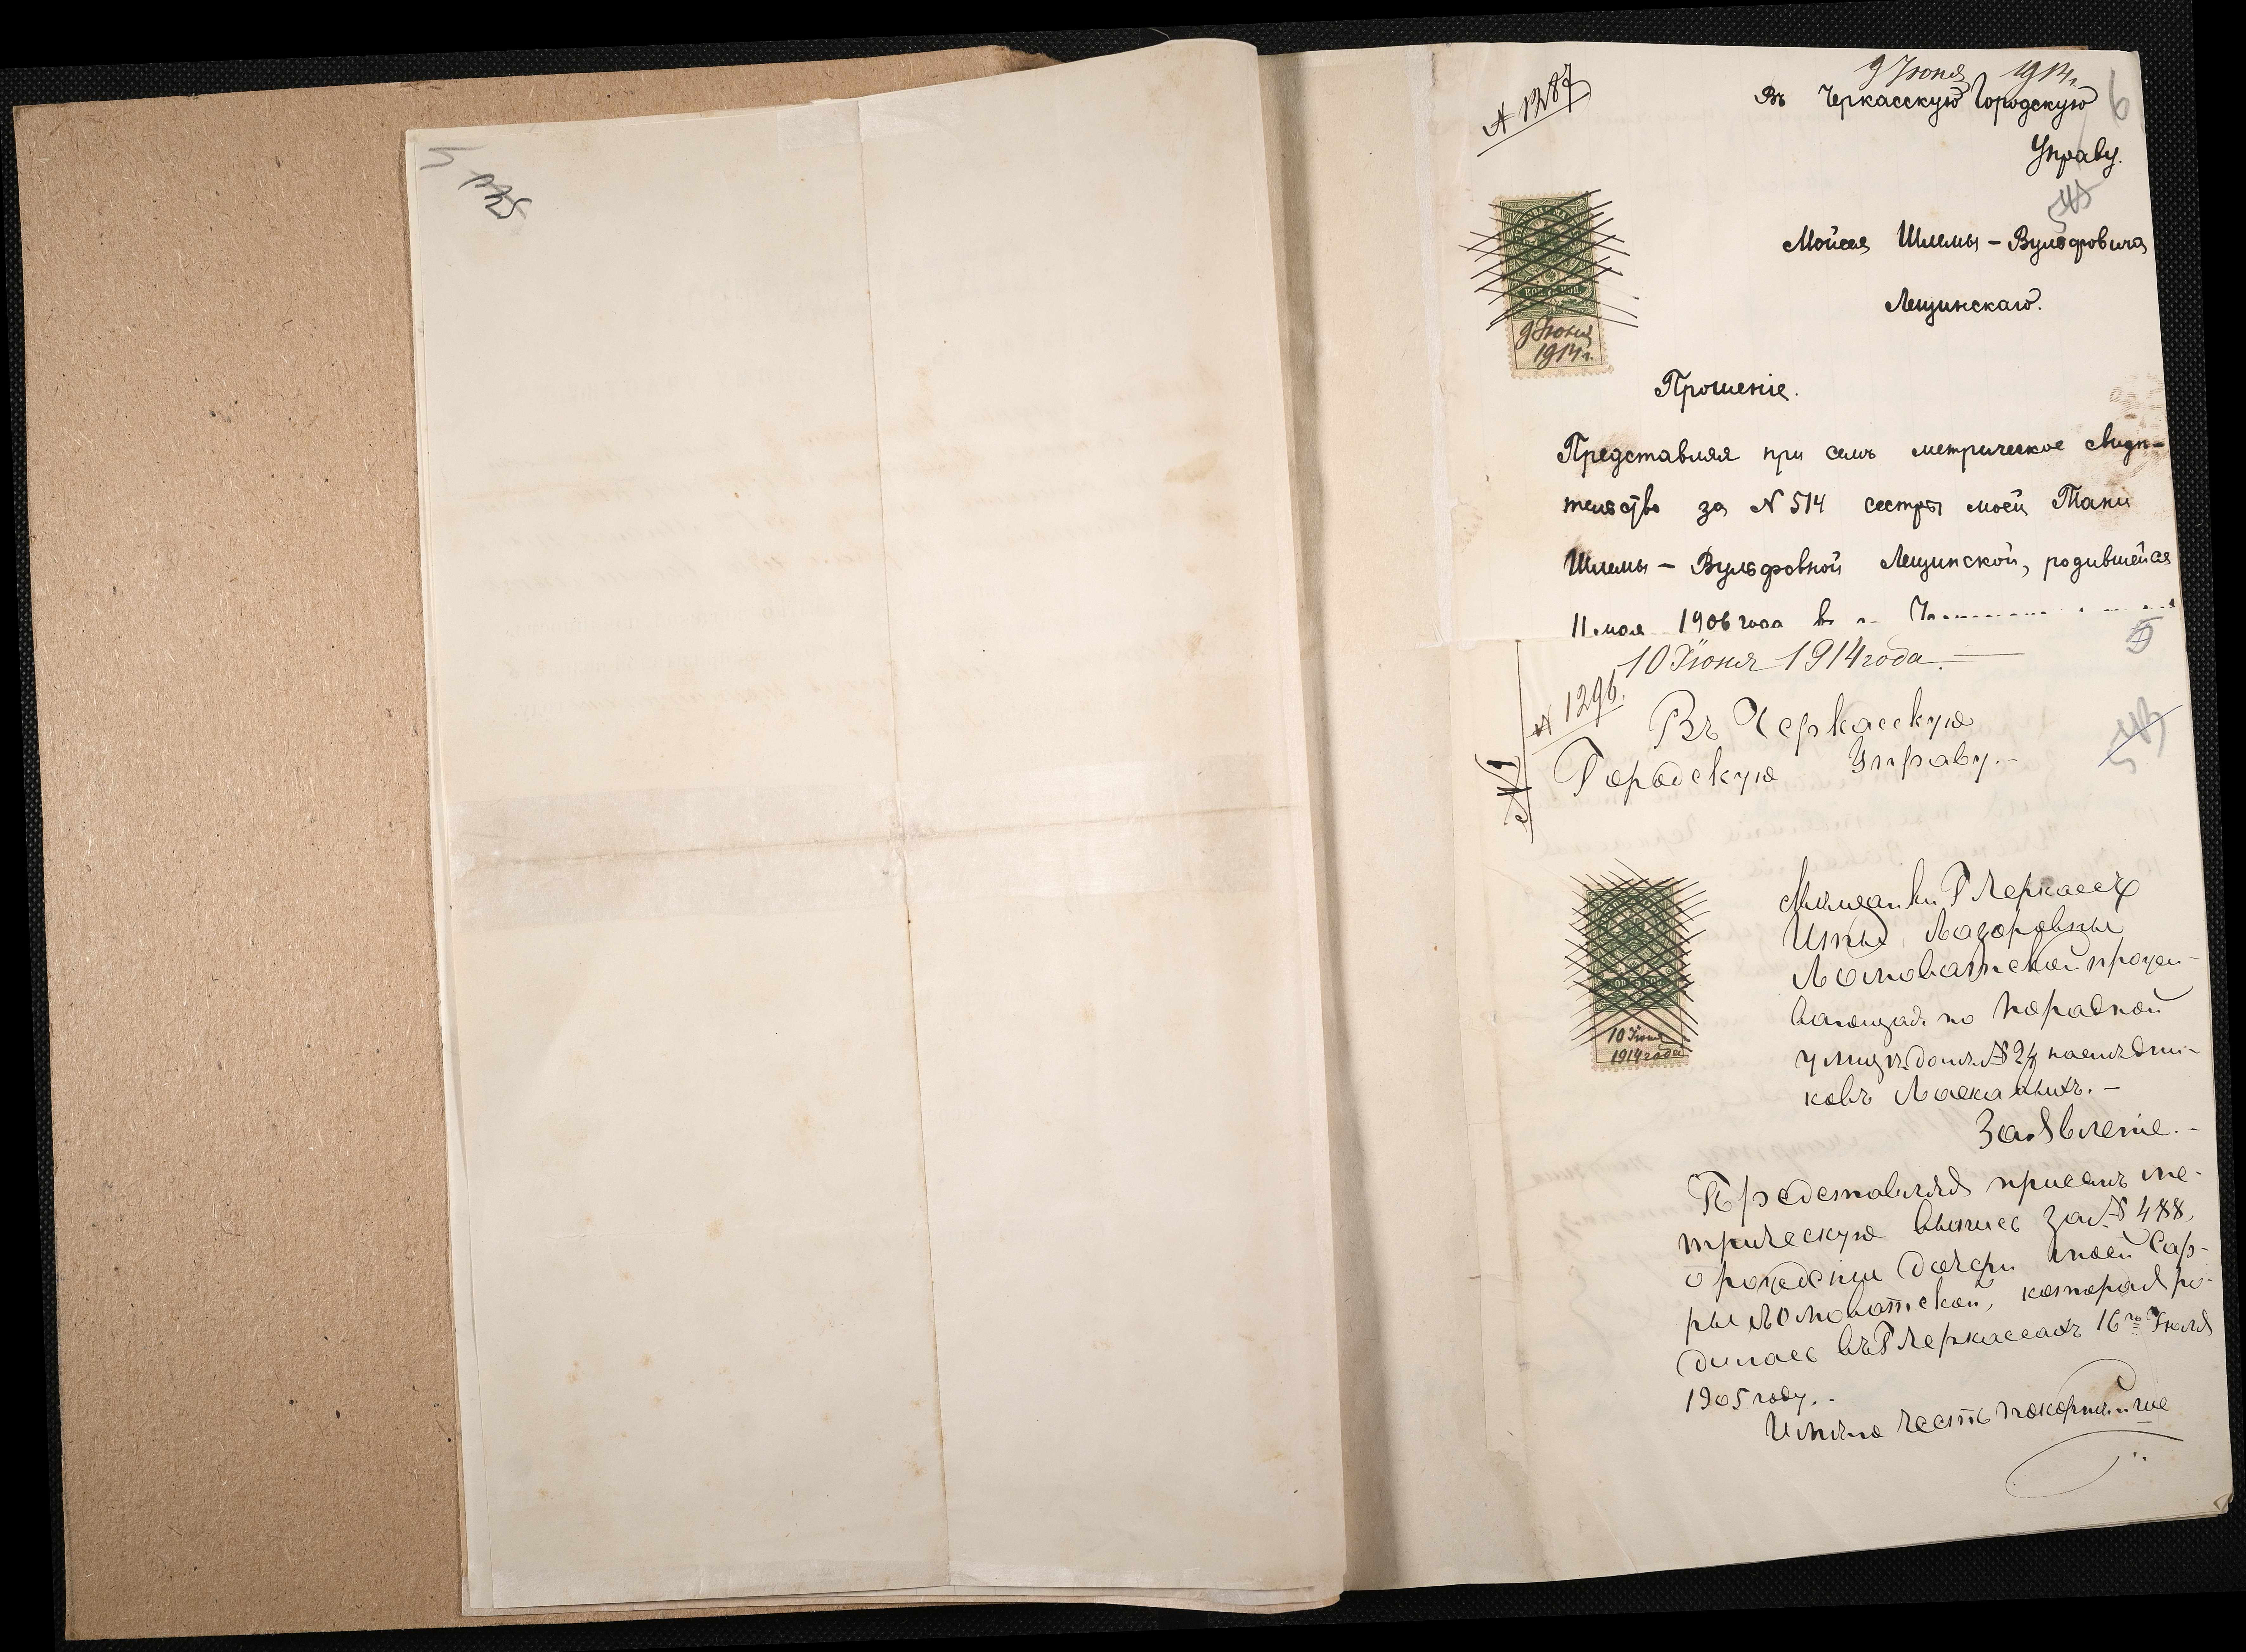 5
9 Іюня 1914 г.
№ 1287
Въ Черкасскую Городскую
6
Управу.
Мойсея Шлемы-Вульфовича
Лещинскаго.
9 Іюня
1914 г.
Прошеніе.
Представляя при семъ метрическое свидѣ-
тельство за № 514 сестры моей Тани
Шлемы-Вульфовной Лещинской, родившейся
11 мая 1906 года въ г.
10 Іюня 1914 года.
№ 1296.
Въ Черкасскую
Городскую Управу.-
Мѣщанки Г Черкассъ
Иты Лазоровны
Ломоватской прожи-
вающая по Нарадной
улицѣ домъ № 24 наслѣдни-
ковъ
10 Іюня
1914 года
Заявленіе.-
Представляя присемъ ме-
трическую выпись за № 488,
о рожденіи дочери моей Сар-
ры Ломоватской, которая ро-
дилась въ Г Черкассахъ 16го Іюля
1905 году.-
Имѣю честь покорнѣйше